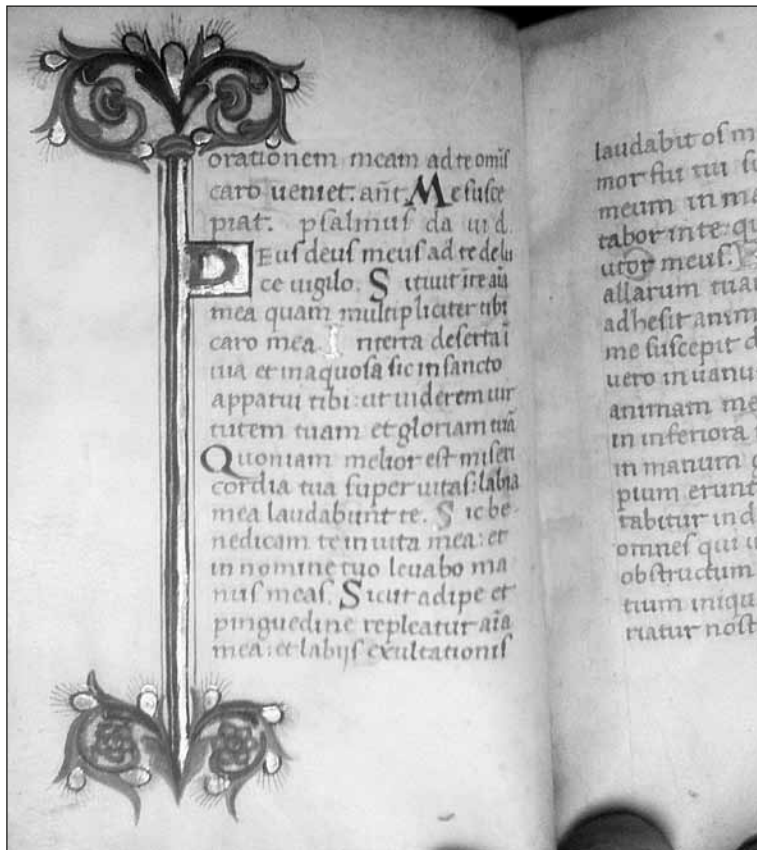 orationem meam ad te omiſ
caro ueniet. añt Me ſuſce
piat. pſalmuſ da ui d.
DEuſ deuſ meuſ ad te de lu
ce uigilo. Sitiuit in te aĩa
mea quam multipliciter tibi
caro mea. In terra deſerta ĩ
uia et inaquoſa ſic in ſancto
apparui tibi: ut uiderem uir
tutem tuam et gloriam tuã
Quoniam melior eſt miſeri
cordia tua ſuper uitaſ: labia
mea laudabunt te. Sic be-
nedicam te in uita mea: et
in nomine tuo leuabo ma
nuſ meaſ. Sicut adipe et
pinguedine repleatur aĩa
mea: et labijſ exultationiſ
laudabit oſ m
mor fui tui ſu
meum in ma
tabor in te: qu
utor meuſ.
allarum tuar
adheſit anim
me ſuſcepit d
uero in uanu
animam me
in inferiora
in manum g
pium erunt
tabitur in d
omneſ qui i
obſtructum
tium iniqu
riatur noſt